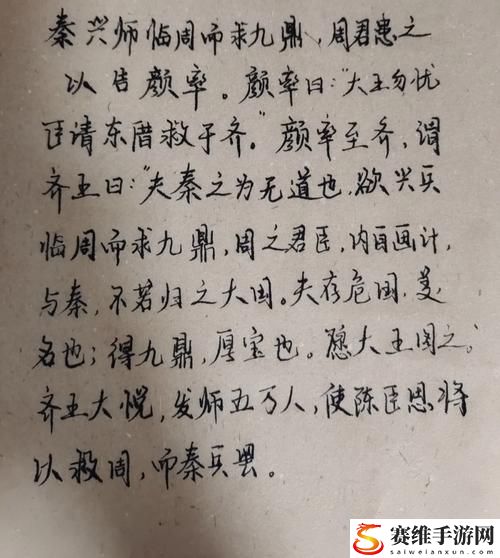 秦兴师临周而求九鼎，周君患之
以告颜率。颜率曰：“大王勿忧
臣请东借救于齐。”颜率至齐，谓
齐王曰：“夫秦之为无道也，欲兴兵
临周而求九鼎，周之君臣，内自画计，
与秦，不若归之大国。夫存危国，美
名也；得九鼎，厚宝也。愿大王图之。”
齐王大悦，发师五万人，使陈臣思将
以救周，而秦兵罢。
赛维手游网
www.saiweianxun.com